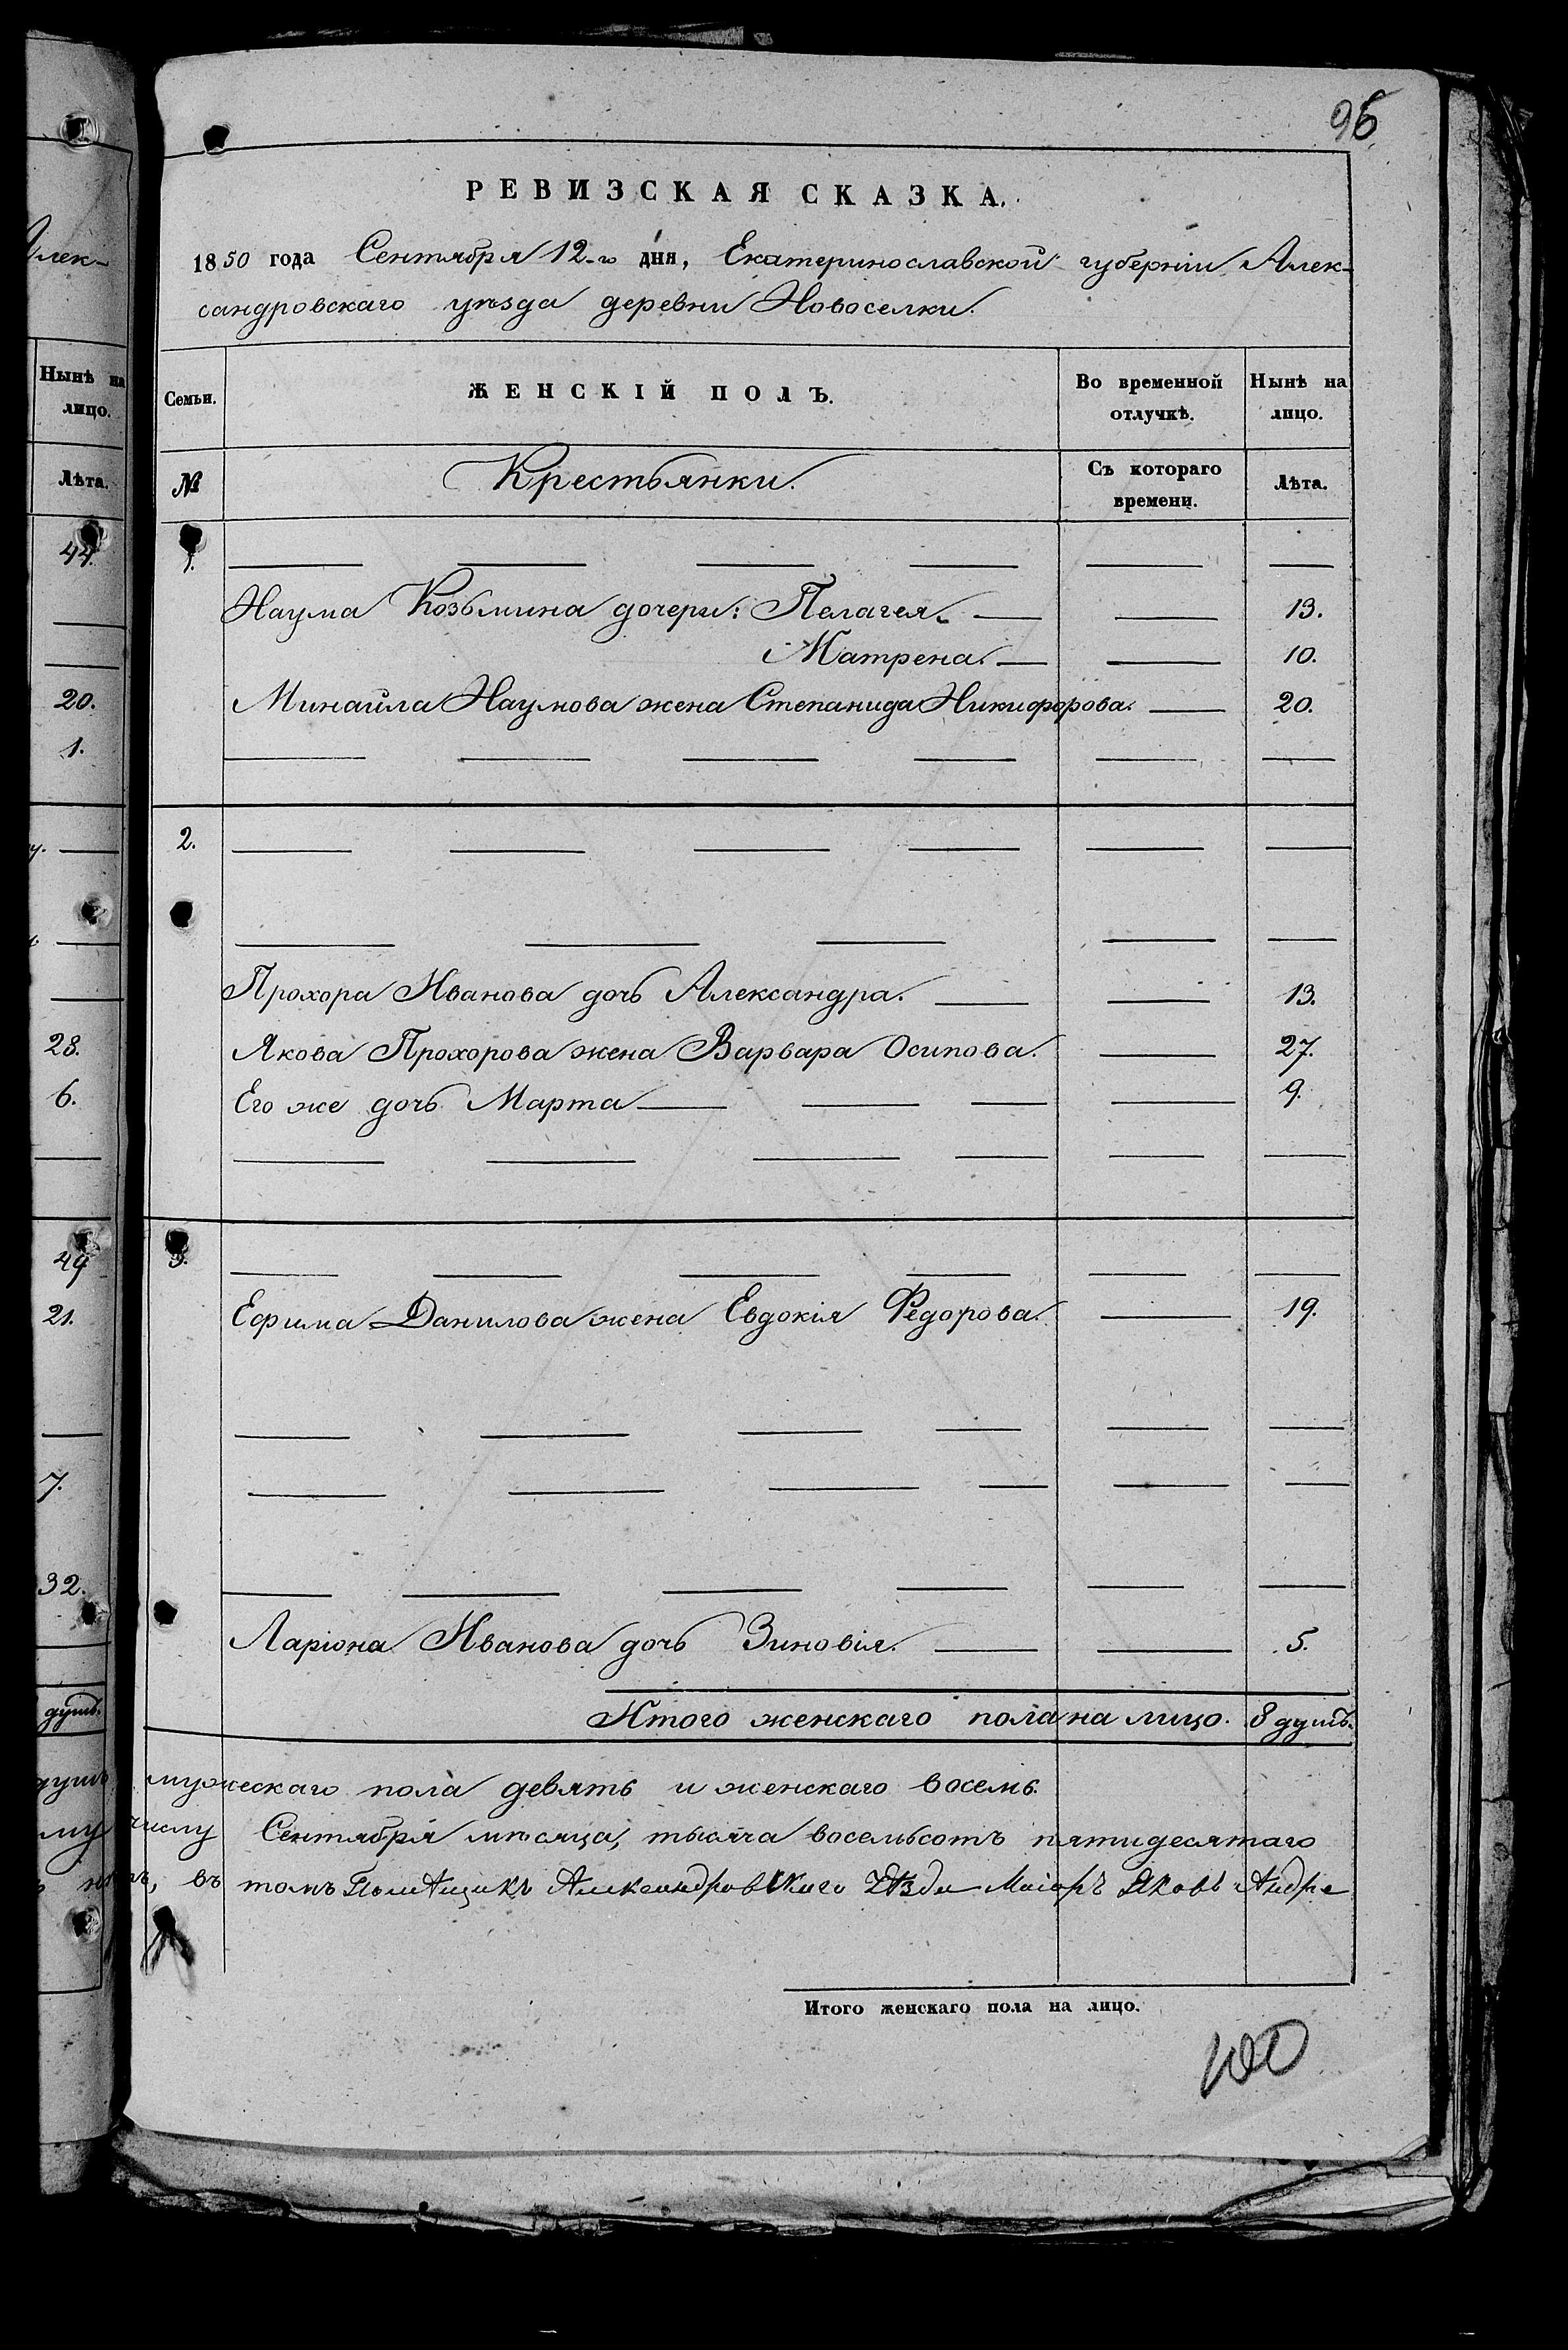 96
РЕВИЗСКАЯ СКАЗКА.
1850 года Сентября 12-го дня, Екатеринославской губерніи Алек-
сандровскаго уѣзда деревни Новоселки.
Семьи. ЖЕНСКІЙ ПОЛЪ. Во временной отлучкѣ. Нынѣ на лицо.
№ Крестьянки. Съ котораго времени. Лѣта.
1.
Наума Козьмина дочери: Пелагея. 13.
Матрена. 10.
Минайла Наумова жена Степанида Никифорова. 20.
2.
Прохора Иванова дочь Александра. 13.
Якова Прохорова жена Варвара Осипова. 27.
Его же дочь Марта 9.
3.
Ефима Данилова жена Евдокія Федорова. 19.
Ларіона Иванова дочь Зиновія. 5.
Итого женскаго пола на лицо. 8 душъ.
мужескаго пола девять и женскаго восемь.
числу Сентября мѣсяца, тысяча восемьсотъ пятидесятаго
въ томъ Помѣщикъ Александровскаго Уѣзда Маіоръ Яковъ Андре
Итого женскаго пола на лицо.
100
Алек-
Нынѣ на
лицо.
Лѣта.
44.
20.
1.
28.
6.
49
21.
7.
32.
душъ.
душъ
му